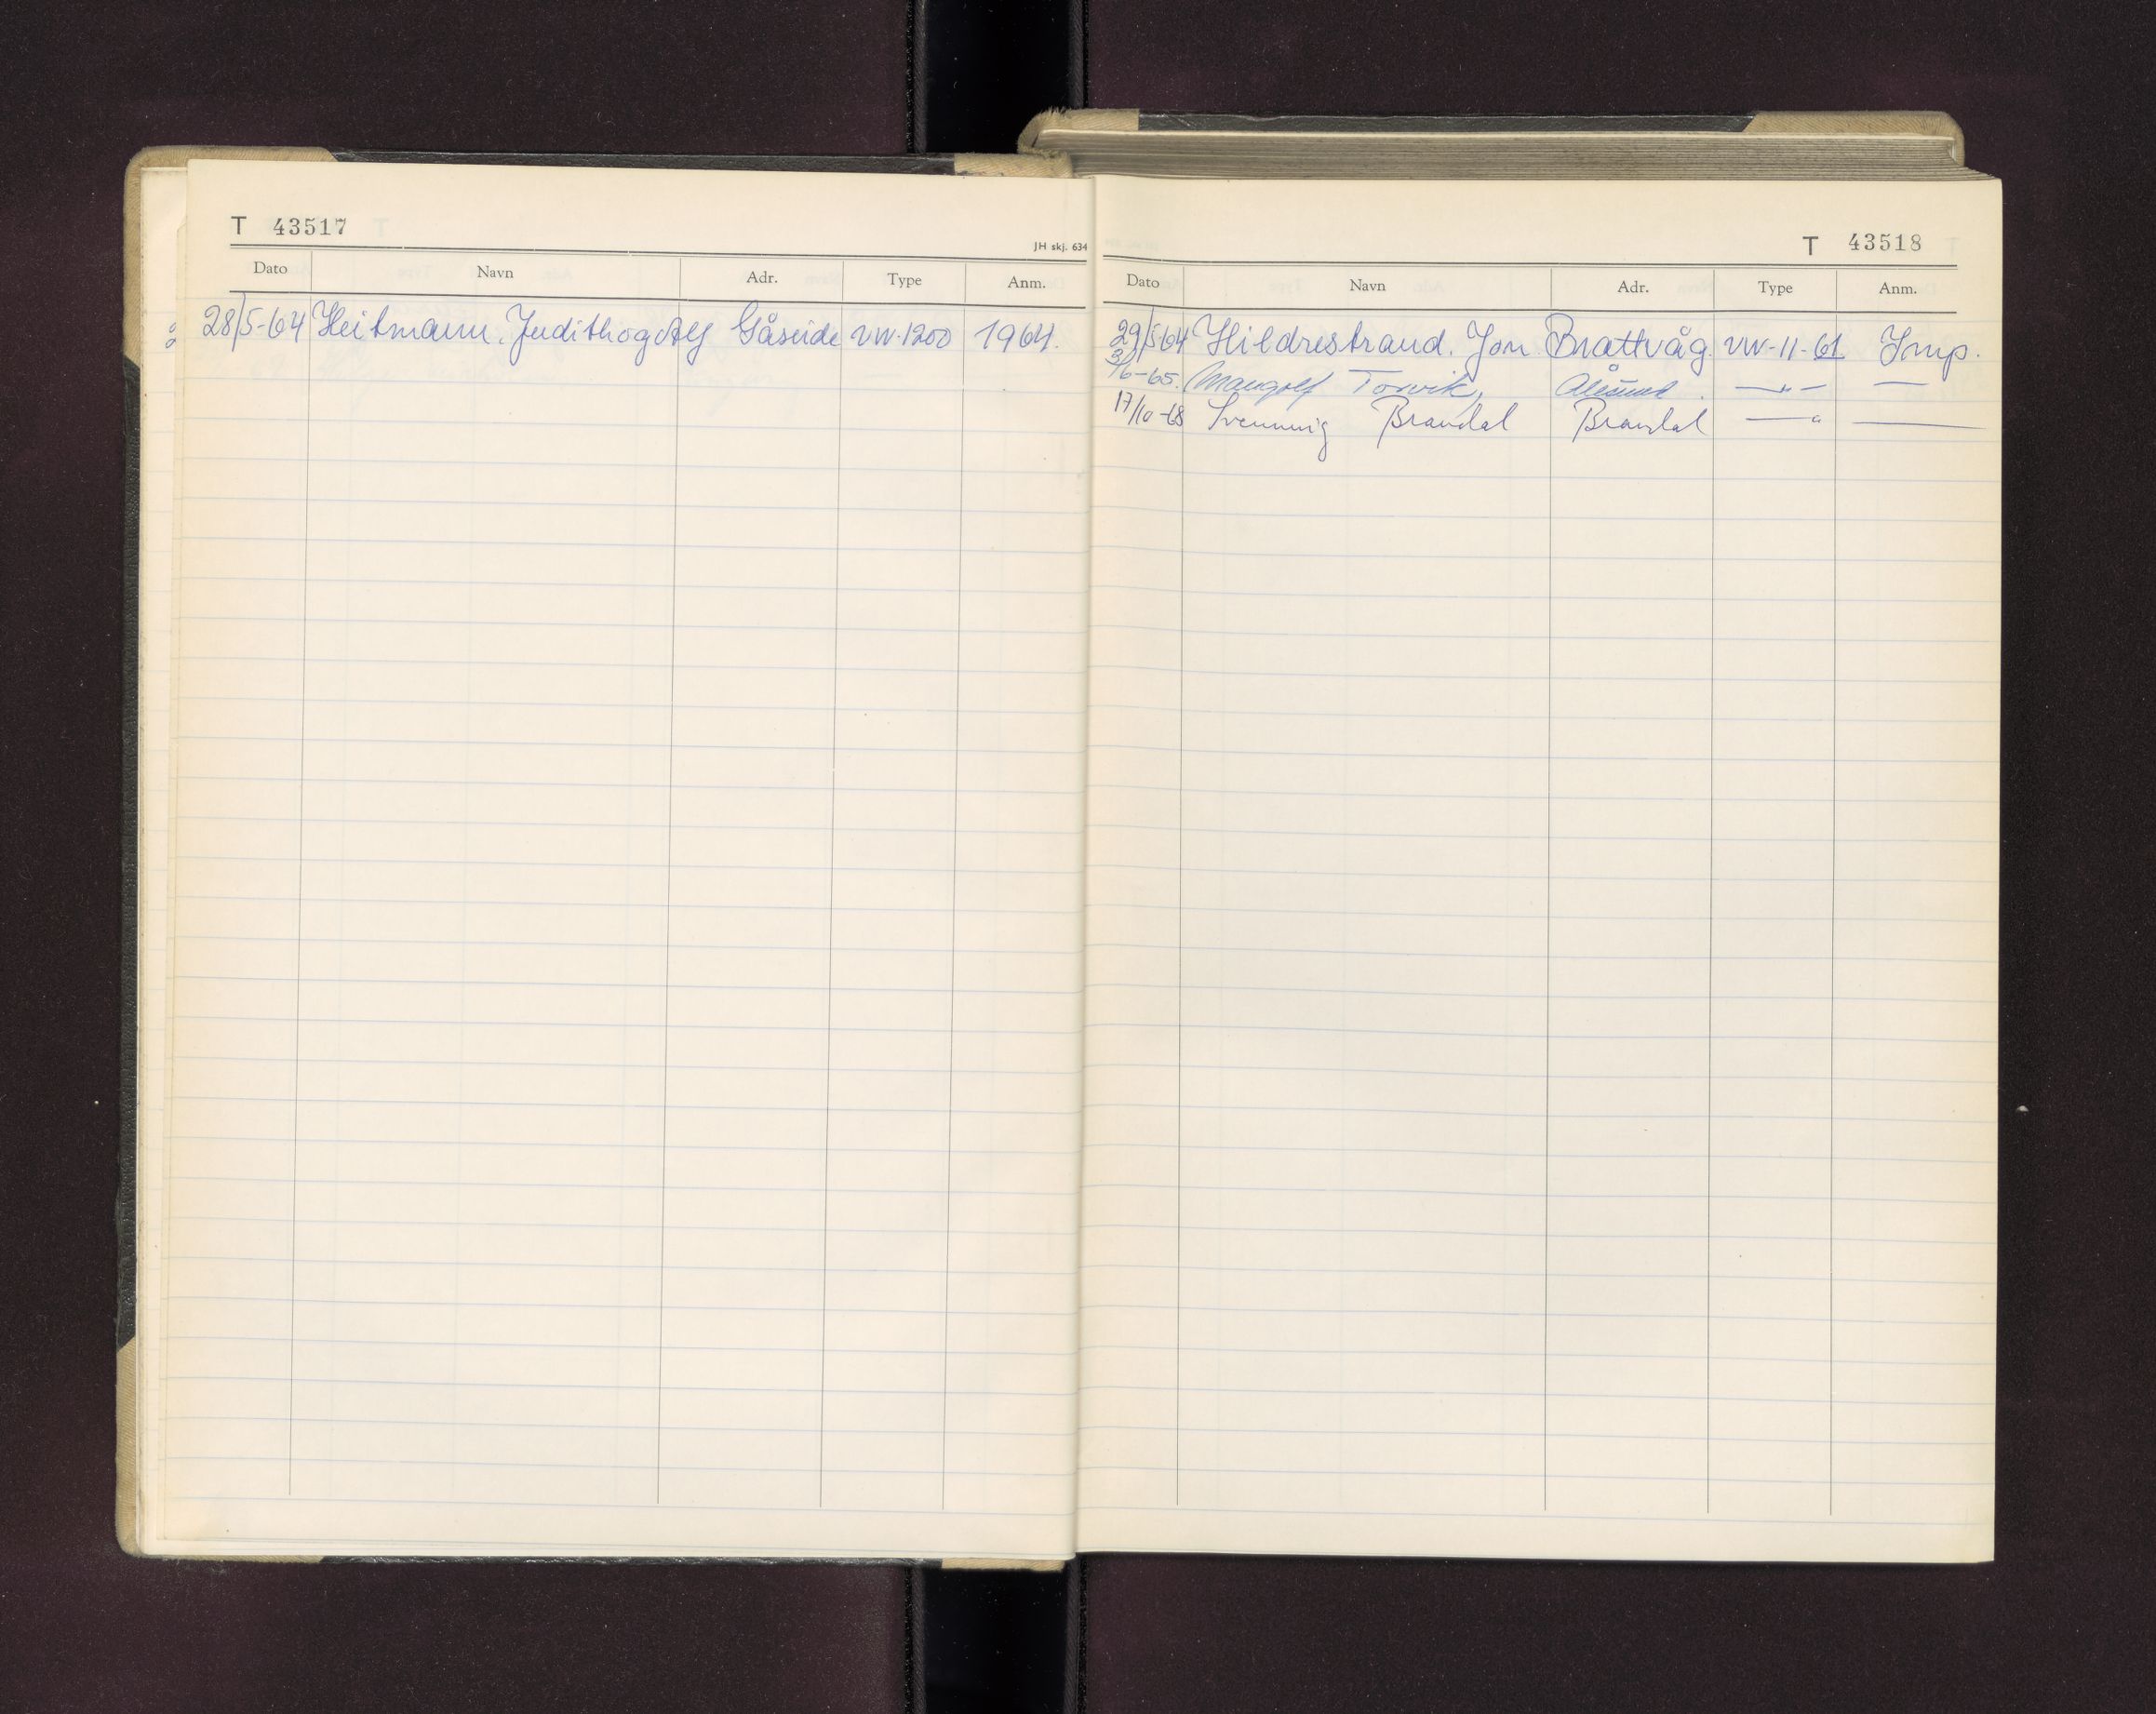 T 43517
JH skj. 634
Dato Navn Adr. Type Anm.
28/5-64 Heitmann, Judith og Alf Gåseide VW.1200 1964.
T 43518
Dato Navn Adr. Type Anm.
29/5-64 Hildrestrand. Jon Brattvåg. VW-11-61 Imp.
3/6-65. Mangolf Torvik, Ålesund. —"— —
17/10-68 Svennnig Brandal Brandal —" —